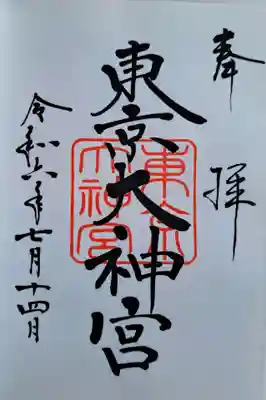 奉拝
東京大神宮
東京大神宮
令和六年七月十四月